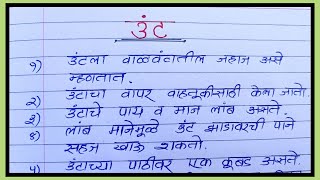 उंट
१) उंटला वाळवंटातील जहाज असे
म्हणतात.
२) उंटाचा वापर वाहतूकीसाठी केला जातो.
३) उंटाचे पाय व मान लांब असते.
४) लांब मानेमूळे उंट झाडावरची पाने
सहज खाऊ शकतो.
५) उंटाच्या पाठीवर एक कूबड असते.